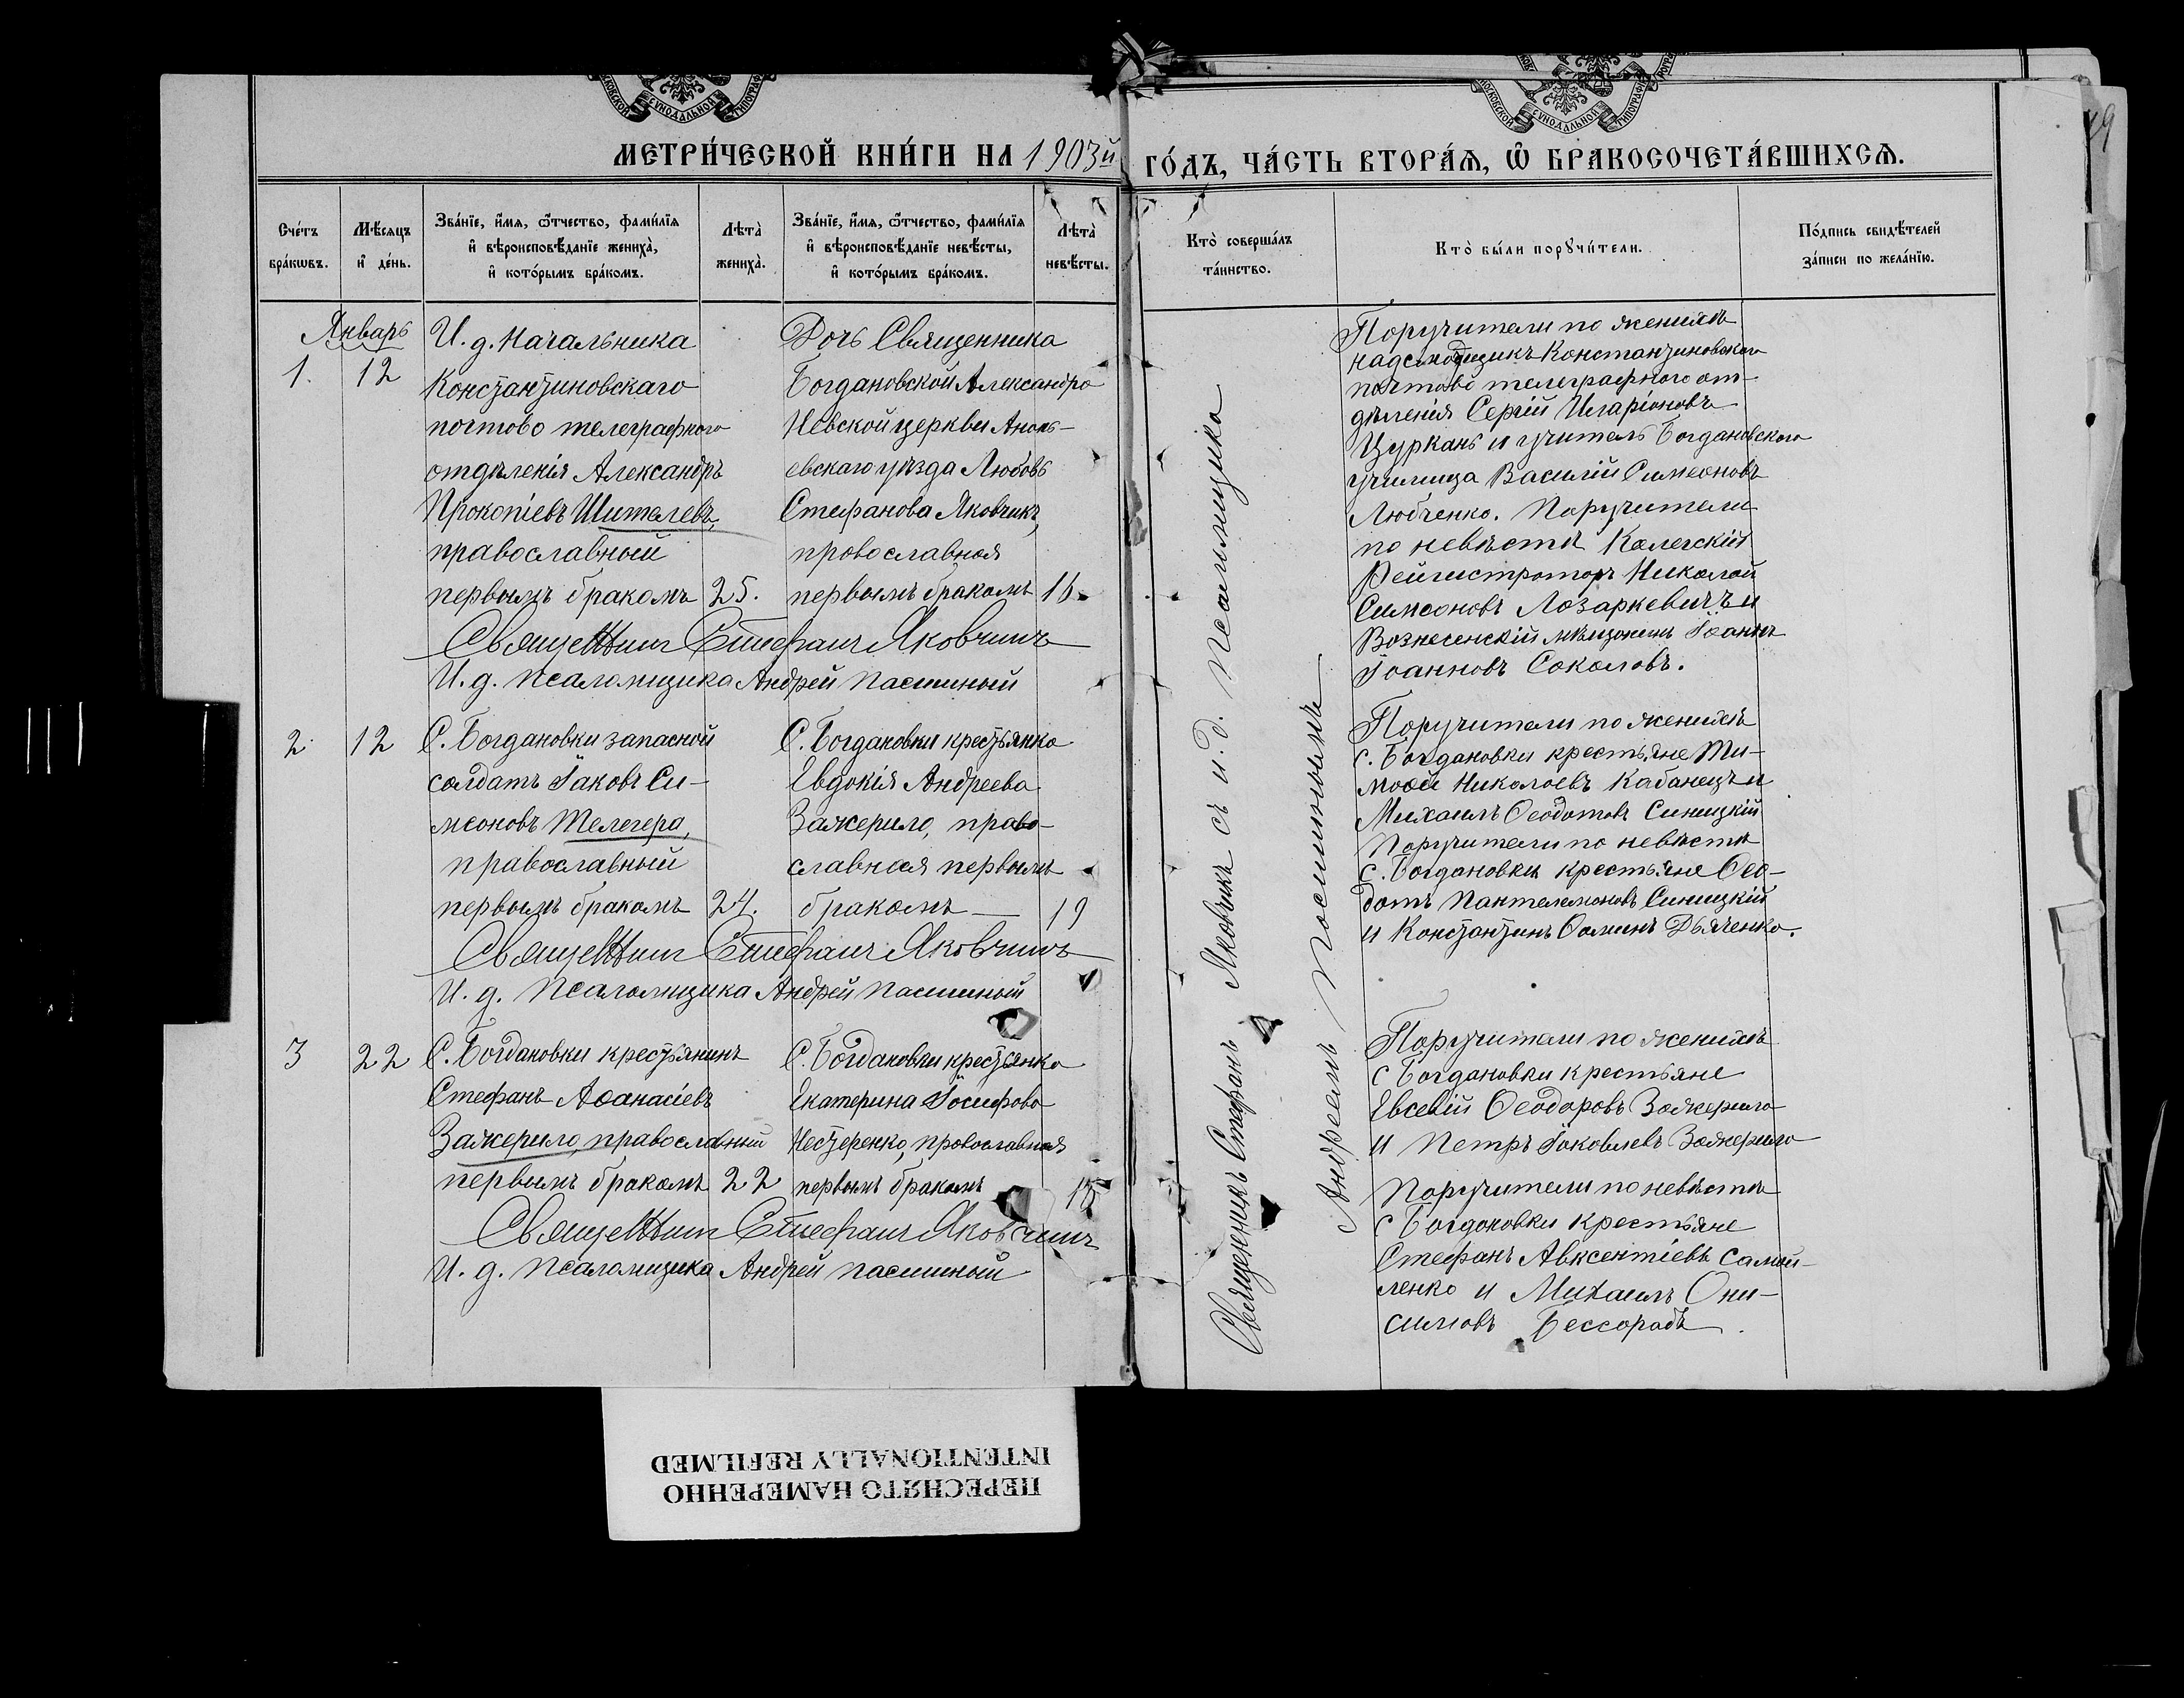 МЕТРИ́ЧЕСКОЙ КНИ́ГИ НА 1903й ГО́ДЪ, ЧА́СТЬ ВТОРА́Ѧ, Ѽ БРАКОСОЧЕТА́ВШИХСѦ.
Сче́тъ бра́кѡвъ.
Мѣ́сяцъ и҆ де́нь.
Зва́нїе, и҆́мѧ, ѻ҆́тчество, фами́лїѧ и҆ вѣроисповѣ́данїе жениха̀, и҆ кото́рымъ бра́комъ.
Лѣта̀ жениха̀.
Зва́нїе, и҆́мѧ, ѻ҆́тчество, фами́лїѧ и҆ вѣроисповѣ́данїе невѣ́сты, и҆ кото́рымъ бра́комъ.
Лѣта̀ невѣ́сты.
Кто̀ соверша́лъ та́инство.
Кто̀ бы́ли порꙋчи́тели.
По́дпись свидѣ́телей за́писи по жела́нїю.
Январь
1. 12
И. д. Начальника
Константиновскаго
почтово телеграфного
отдѣленія Александръ
Прокопіевъ Шителевъ,
православный
первымъ бракомъ 25.
Дочь Священника
Богдановской Александро
Невской церкви Анань-
евскаго уѣзда Любовь
Стефанова Яковчикъ,
православная
первымъ бракомъ 16
Священник Стефанъ Яковчикъ
И. д. Псаломщика Андрей Пасишный
Поручители по женихѣ
надсмотрщикъ Константиновскаго
почтово телеграфного от-
дѣленія Сергій Иларіоновъ
Цурканъ и учитель Богдановского
училища Василій Симеоновъ
Любченко. Поручители
по невѣстѣ Колежскій
Регистраторъ Николай
Симеоновъ Лазаркевичъ и
Вознесенскій мѣщанинъ Іоаннъ
Іоанновъ Соколовъ.
2. 12
С. Богдановки запасной
солдатъ Іаковъ Си-
меоновъ Телегера,
православный
первымъ бракомъ 24.
С. Богдановки крестьянка
Евдокія Андреева
Зажерило, право-
славная первымъ
бракомъ — 19
Священник Стефанъ Яковчикъ
И. д. Псаломщика Андрей Пасишный
Поручители по женихѣ
с. Богдановки крестьяне Ти-
моѳей Николаевъ Кабанецъ и
Михаилъ Ѳеодотовъ Синицкій
Поручители по невѣстѣ
с. Богдановки крестьяне Ѳео-
дотъ Пантелемоновъ Синицкій
и Константинъ Ѳоминъ Дьяченко.
3 22
С. Богдановки крестьянинъ
Стефанъ Аѳанасіевъ
Зажерило, православный
первымъ бракомъ 22
С. Богдановки крестьянка
Екатерина Іосифова
Нестеренко, православная
первымъ бракомъ
Священник Стефанъ Яковчикъ
И. д. Псаломщика Андрей Пасишный
Поручители по женихѣ
с Богдановки крестьяне
Евсевій Ѳеодоровъ Зажерило
и Петръ Іаковлевъ Зажерило
Поручители по невѣстѣ
с Богдановки крестьяне
Стефанъ Авксентіевъ Самой-
ленко и Михаилъ Они-
симовъ Бессорабъ.
Священникъ Стефанъ Яковчикъ съ и. д. Псаломщика
Андреемъ Пасишнымъ
ПЕРЕСНЯТО НАМЕРЕННО
INTENTIONALLY REFILMED